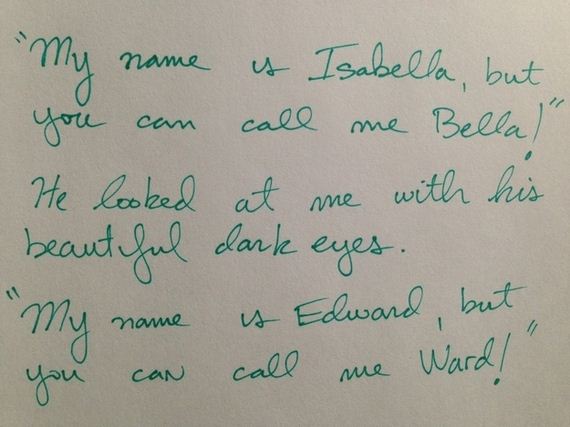 "My name is Isabella, but
you can call me Bella!"
He looked at me with his
beautiful dark eyes.
"My name is Edward, but
you can call me Ward!"